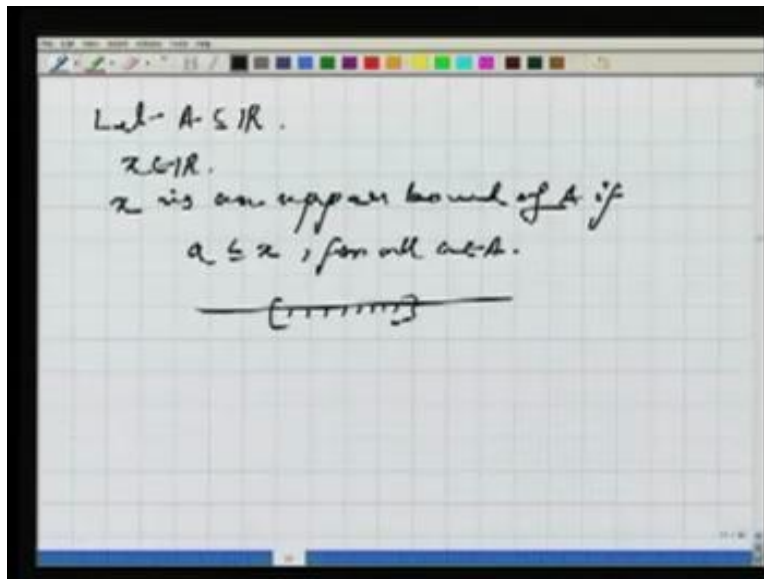 Let A ⊆ ℝ.
x ∈ ℝ.
x is an upper bound of A if
a ≤ x, for all a ∈ A.